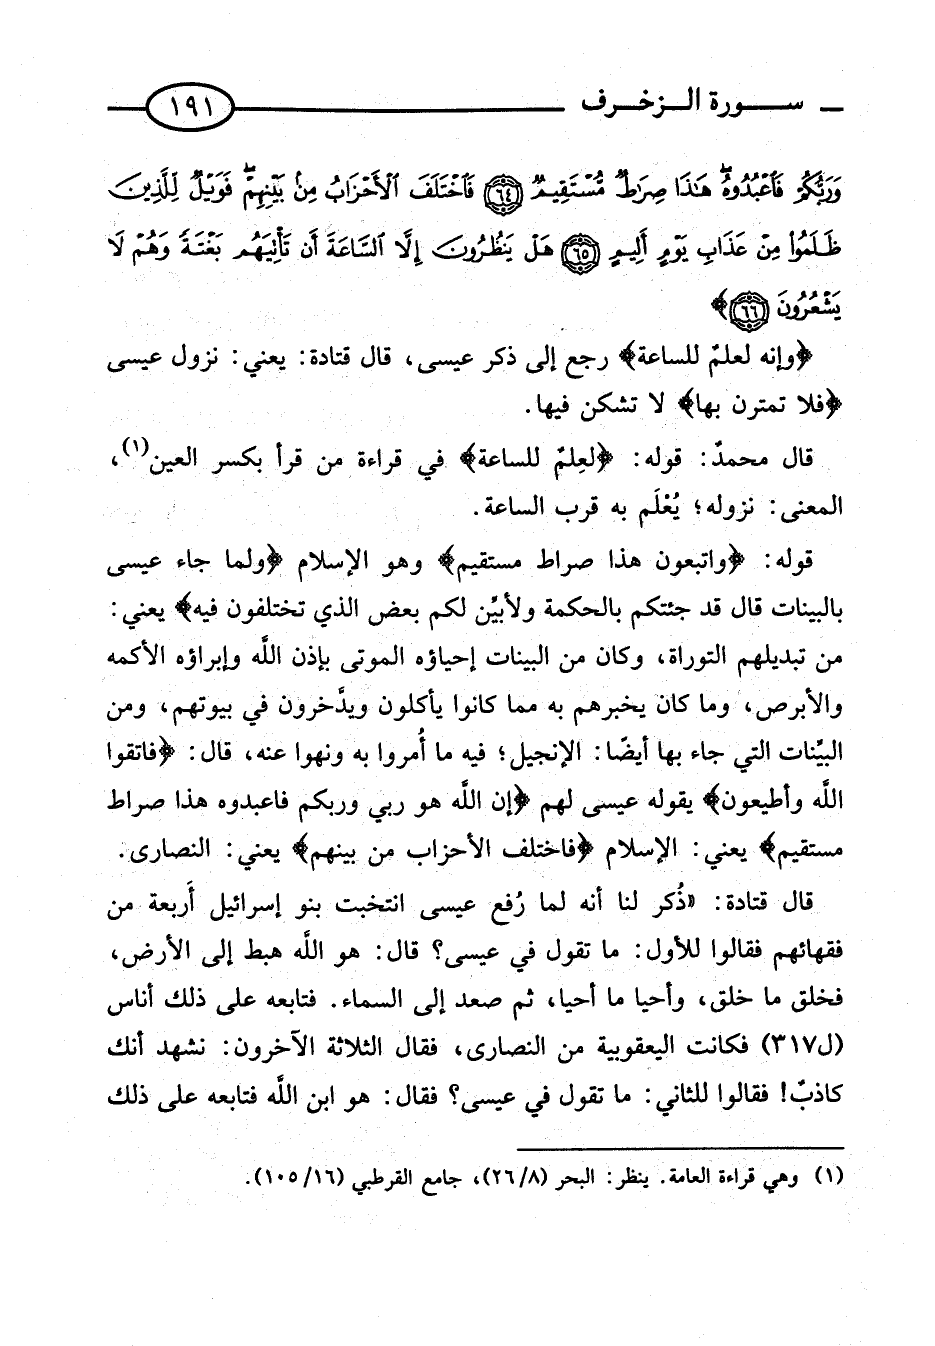 سورة الزخرف ١٩١
وَرَبُّكُمْ فَٱعْبُدُوهُ ۚ هَٰذَا صِرَٰطٌ مُّسْتَقِيمٌ ٦٤ فَٱخْتَلَفَ ٱلْأَحْزَابُ مِنۢ بَيْنِهِمْ ۖ فَوَيْلٌ لِّلَّذِينَ
ظَلَمُوا۟ مِنْ عَذَابِ يَوْمٍ أَلِيمٍ ٦٥ هَلْ يَنظُرُونَ إِلَّا ٱلسَّاعَةَ أَن تَأْتِيَهُم بَغْتَةً وَهُمْ لَا
يَشْعُرُونَ ٦٦﴾
﴿وإنه لعلمٌ للساعة﴾ رجع إلى ذكر عيسى، قال قتادة: يعني: نزول عيسى
﴿فلا تمترن بها﴾ لا تشكن فيها.
قال محمدٌ: قوله: ﴿لعِلمٌ للساعة﴾ في قراءة من قرأ بكسر العين(١)،
المعنى: نزوله؛ يُعْلَم به قرب الساعة.
قوله: ﴿واتبعون هذا صراط مستقيم﴾ وهو الإسلام ﴿ولما جاء عيسى
بالبينات قال قد جئتكم بالحكمة ولأبيِّن لكم بعض الذي تختلفون فيه﴾ يعني:
من تبديلهم التوراة، وكان من البينات إحياؤه الموتى بإذن اللَّه وإبراؤه الأكمه
والأبرص، وما كان يخبرهم به مما كانوا يأكلون ويدَّخرون في بيوتهم، ومن
البيِّنات التي جاء بها أيضًا: الإنجيل؛ فيه ما أُمروا به ونهوا عنه، قال: ﴿فاتقوا
اللَّه وأطيعون﴾ يقوله عيسى لهم ﴿إن اللَّه هو ربي وربكم فاعبدوه هذا صراط
مستقيم﴾ يعني: الإسلام ﴿فاختلف الأحزاب من بينهم﴾ يعني: النصارى.
قال قتادة: «ذُكر لنا أنه لما رُفع عيسى انتخبت بنو إسرائيل أَربعة من
فقهائهم فقالوا للأول: ما تقول في عيسى؟ قال: هو اللَّه هبط إلى الأرض،
فخلق ما خلق، وأحيا ما أحيا، ثم صعد إلى السماء. فتابعه على ذلك أناس
(ل٣١٧) فكانت اليعقوبية من النصارى، فقال الثلاثة الآخرون: نشهد أنك
كاذبٌ! فقالوا للثاني: ما تقول في عيسى؟ فقال: هو ابن اللَّه فتابعه على ذلك
(١) وهي قراءة العامة. ينظر: البحر (٢٦/٨)، جامع القرطبي (١٠٥/١٦).